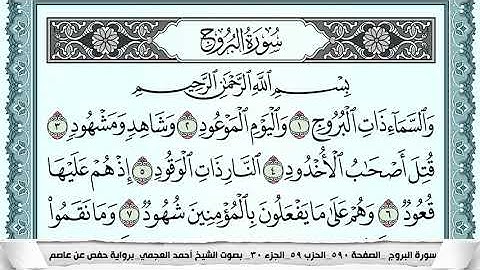 سُورَةُ البُرُوجِ
بِسْمِ اللَّهِ الرَّحْمَٰنِ الرَّحِيمِ
وَالسَّمَآءِ ذَاتِ الْبُرُوجِ ١ وَالْيَوْمِ الْمَوْعُودِ ٢ وَشَاهِدٍ وَمَشْهُودٍ ٣
قُتِلَ أَصْحَابُ الْأُخْدُودِ ٤ النَّارِ ذَاتِ الْوَقُودِ ٥ إِذْ هُمْ عَلَيْهَا
قُعُودٌ ٦ وَهُمْ عَلَىٰ مَا يَفْعَلُونَ بِالْمُؤْمِنِينَ شُهُودٌ ٧ وَمَا نَقَمُوا
سورة البروج _الصفحة ٥٩٠_ الحزب ٥٩_ الجزء ٣٠_ بصوت الشيخ أحمد العجمي_ برواية حفص عن عاصم